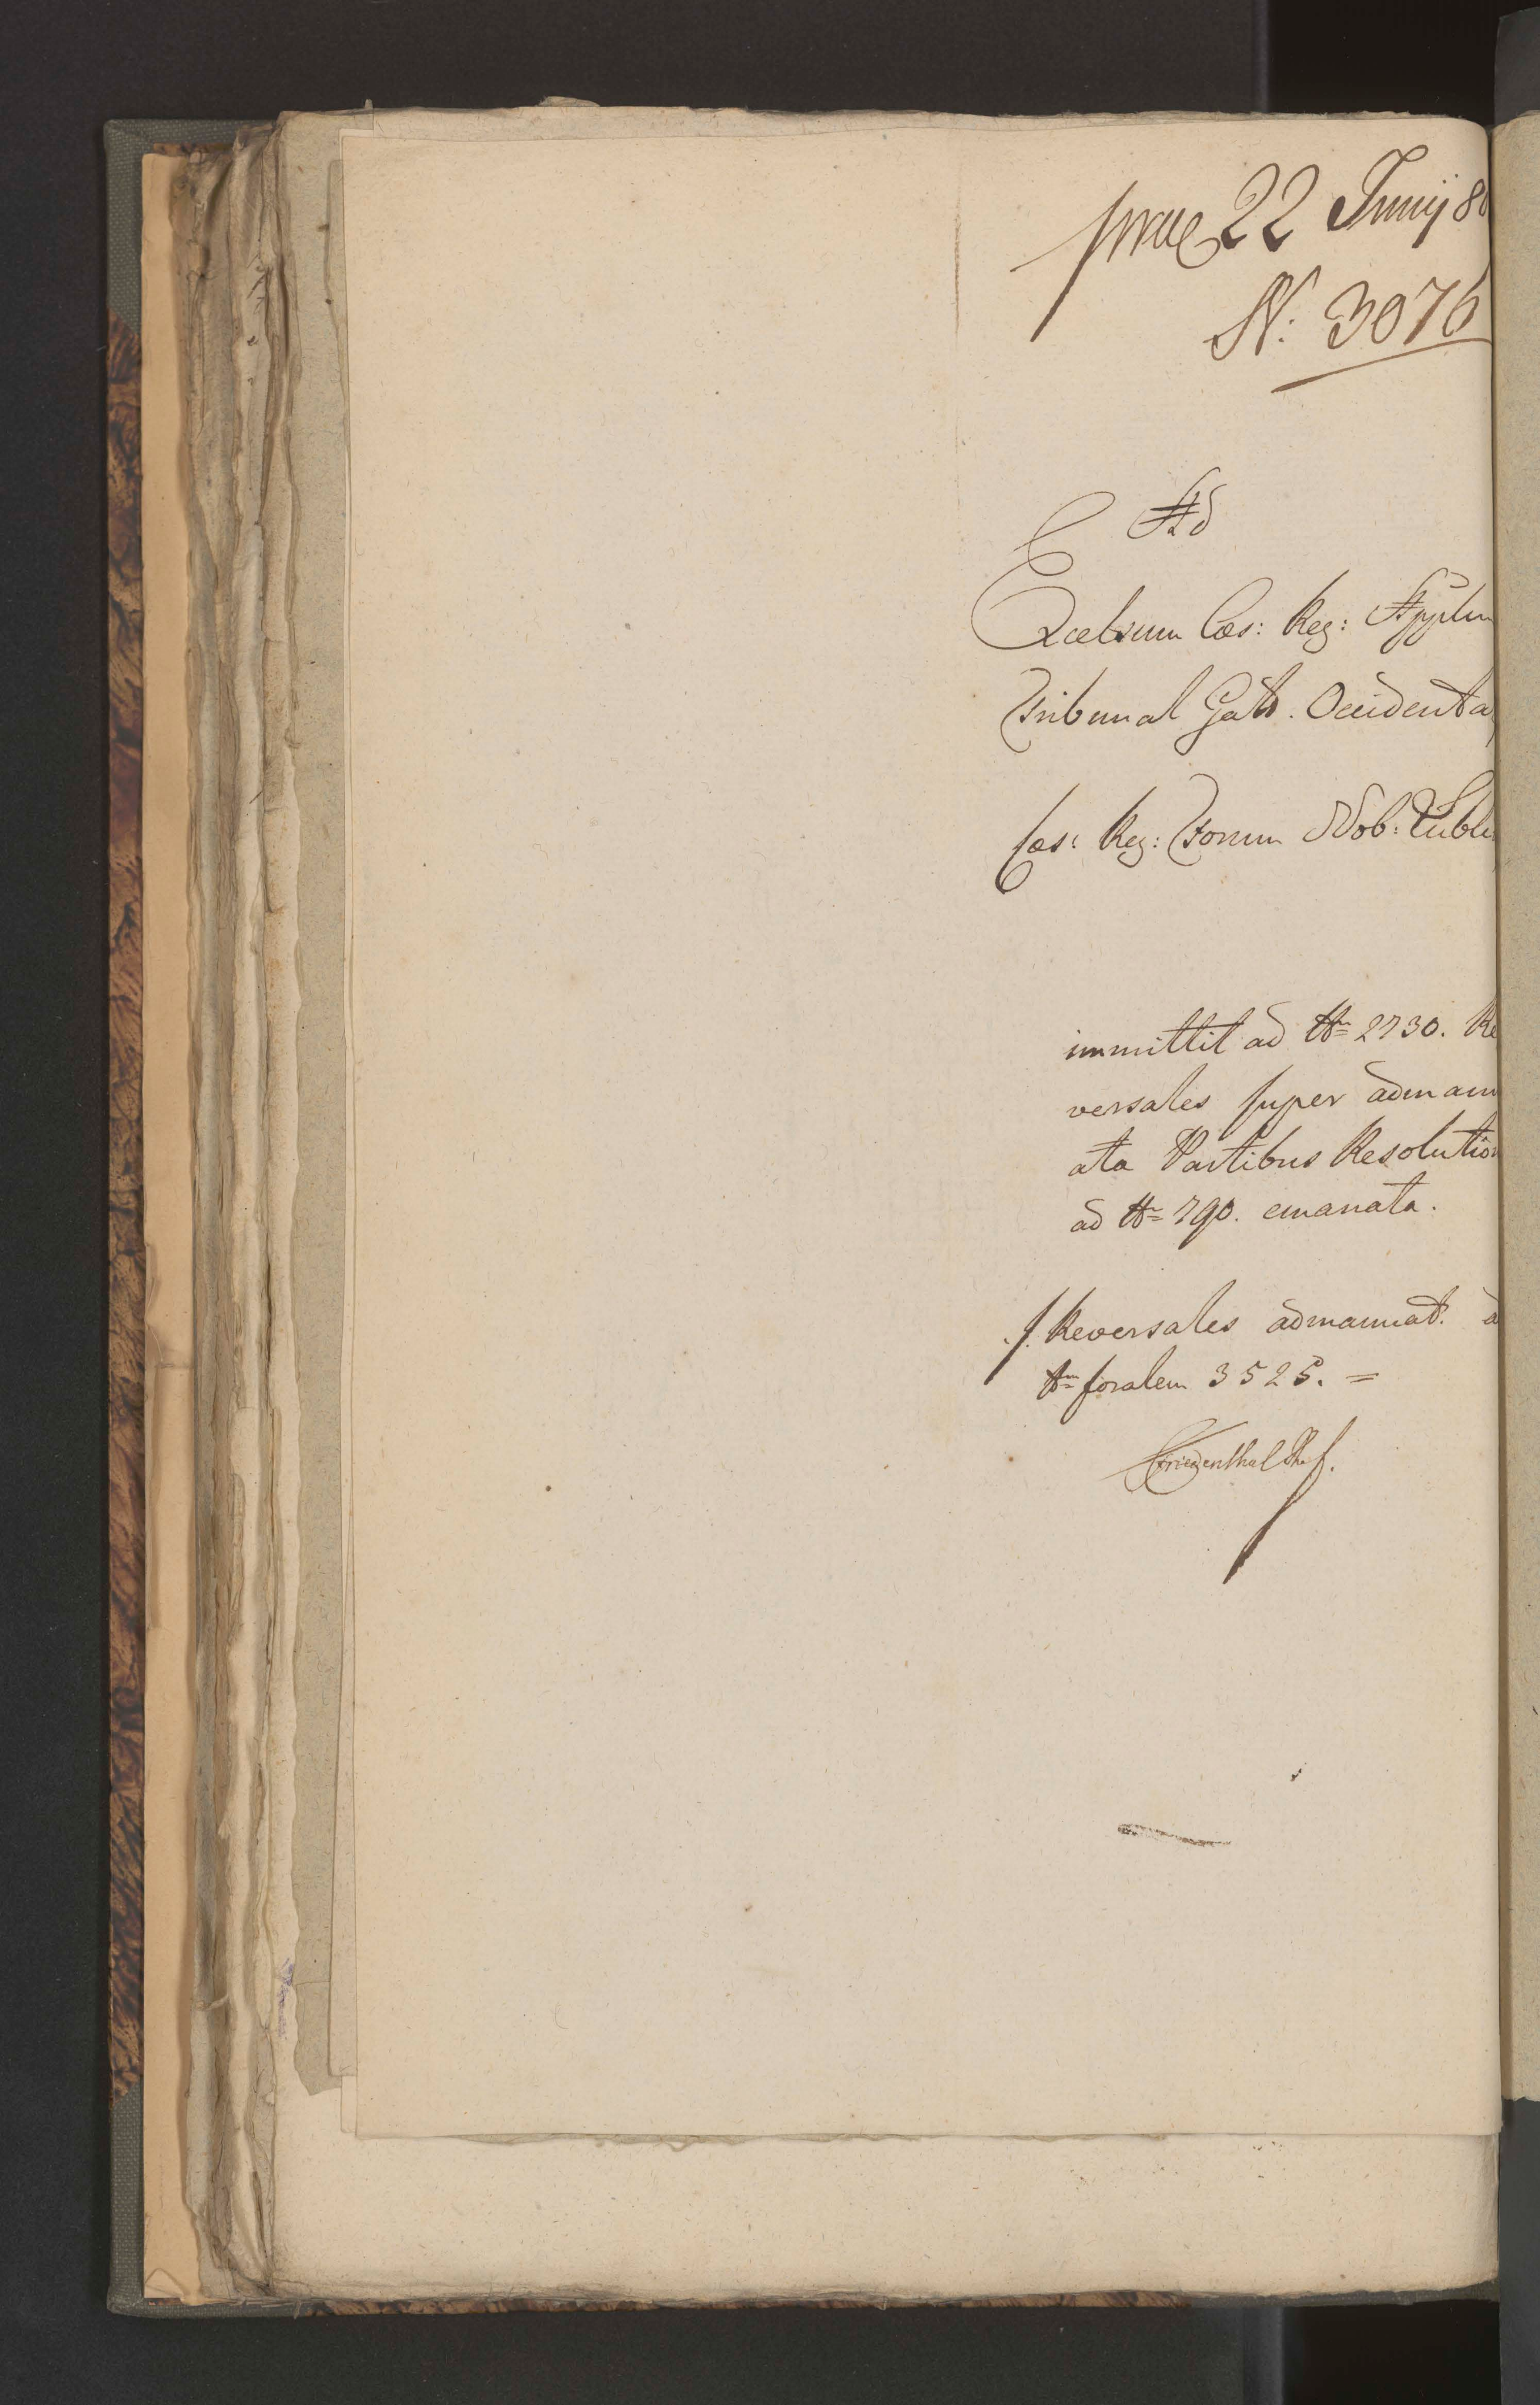 prae 22 Junij 80
N: 3076
Ad
Excelsum Cæs: Reg: Appln
Tribunal Galic. Occidenta
Cæs: Reg: Forum Nob: Lubli
immittit ad Nr 2730. Re
versales super admanu
ata Partibus Resolution
ad Nr 790. emanata.
./. Reversales admanuat: a
Nrm foralem 3525. =
Friedenthal